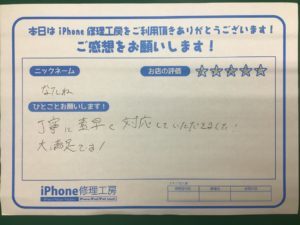 本日は iPhone 修理工房をご利用頂きありがとうございます!
ご感想をお願いします!
ニックネーム
お店の評価 ☆☆☆☆☆
ひとことお願いします!
丁寧に素早く対応していただきました。
大満足です!
iPhone修理工房